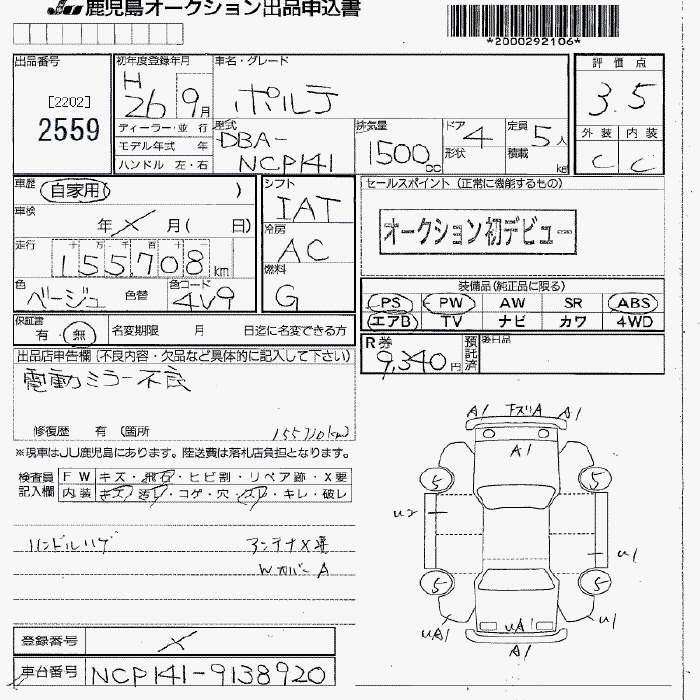 JU 鹿児島オークション出品申込書
*2000292106*
出品番号
[2202]
2559
初年度登録年月
H
26 9月
ディーラー・並 行
モデル年式 年
ハンドル 左・右
車名・グレード
ポルテ
型式
DBA-
NCP141
排気量
1500cc
ドア 4
形状
定員 5人
積載 kg
評価点
3.5
外装 内装
C C
車歴 自家用 )
車検 年 × 月( 日)
走行 十万千百十
155708km
色 ベージュ 色替
色コード 4V9
シフト
IAT
冷房
AC
燃料
G
セールスポイント (正常に機能するもの)
オークション初デビュー
装備品(純正品に限る)
PS PW AW SR ABS
エアB TV ナビ カワ 4WD
保証書
有・無 名変期限 月 日迄に名変できる方
R券
9,340円
預託済
後日品
出品店申告欄(不良内容・欠品など具体的に記入して下さい)
電動ミラー不良
修復歴 有 (箇所
155710km)
※現車はJU鹿児島にあります。陸送費は落札店負担となります。
検査員
記入欄
FW キズ・飛石・ヒビ割・リペア跡・X要
内装 キズ・汚レ・コゲ・穴・スレ・キレ・破レ
ハンドルハゲ
アンテナX要
WカバーA
A1 下スリA A1
A1
5 5
u2
u1
5 5
uA1 uA1 u1
A1
登録番号 ×
車台番号 NCP141-9138920